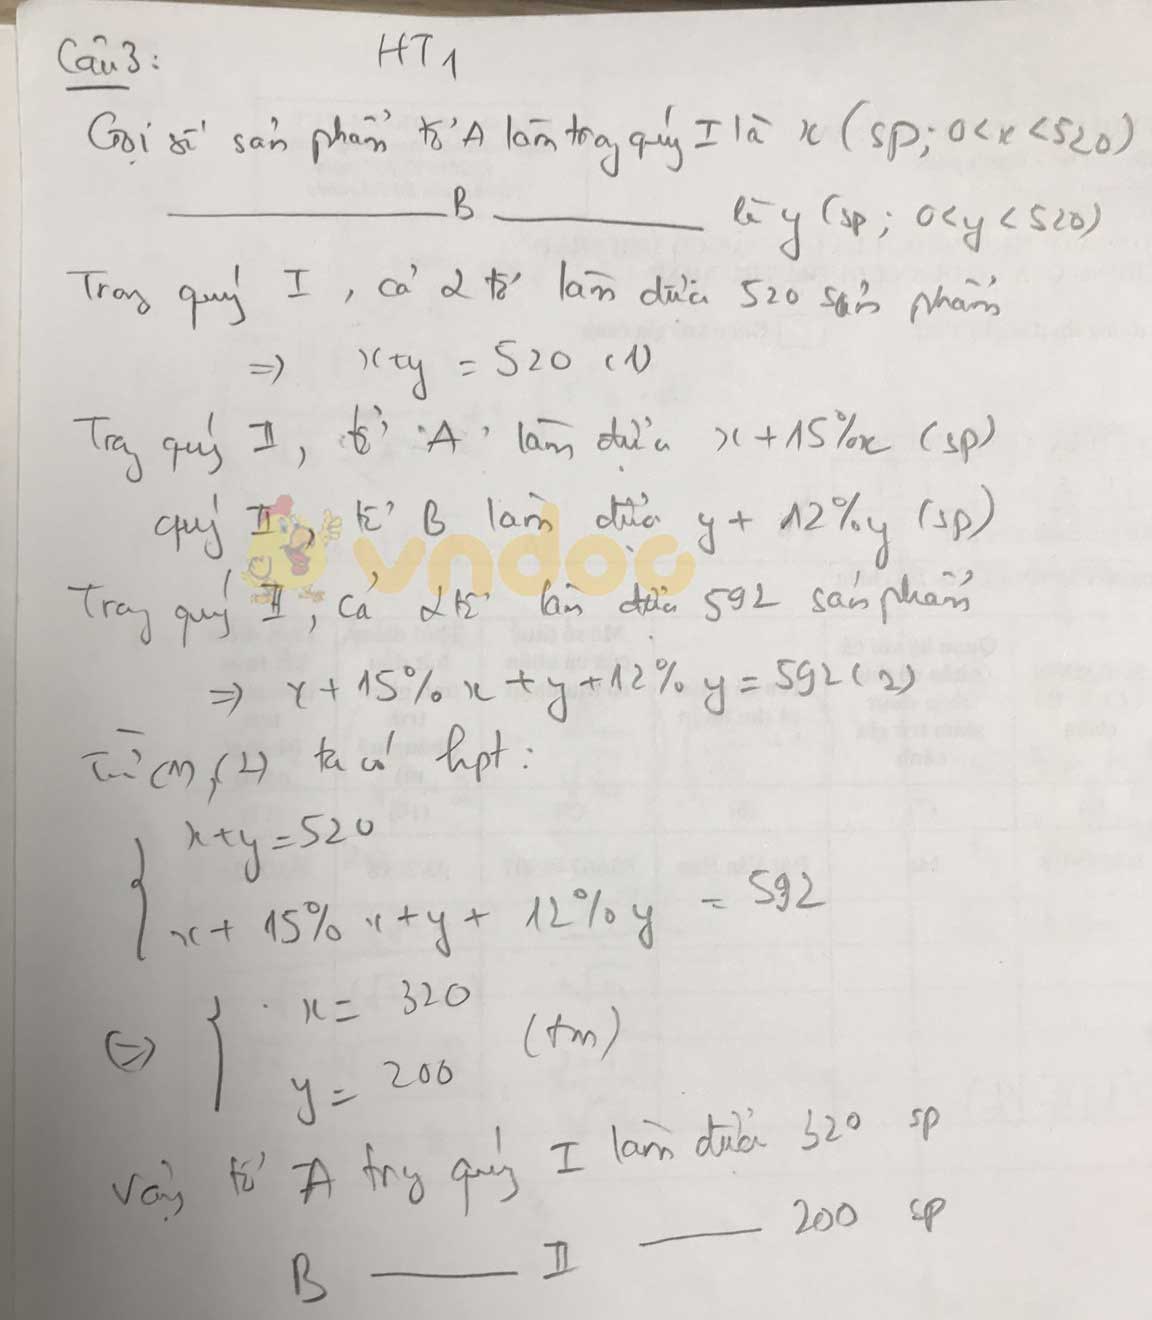 Câu 3: HT1
Gọi số sản phẩm tổ A làm trong quý I là x (sp; 0<x<520)
B là y (sp; 0<y<520)
Trong quý I, cả 2 tổ làm được 520 sản phẩm
=> x+y = 520 (1)
Trong quý II, tổ A làm được x+15%x (sp)
quý II, tổ B làm được y + 12%y (sp)
vndoc
Trong quý II, cả 2 tổ làm được 592 sản phẩm
=> x+15% x + y +12% y = 592 (2)
Từ (1), (2) ta có hpt:
x+y=520
x+ 15% x + y + 12% y = 592
<=> x = 320
(tm)
y = 200
Vậy tổ A trong quý I làm được 320 sp
B II 200 sp